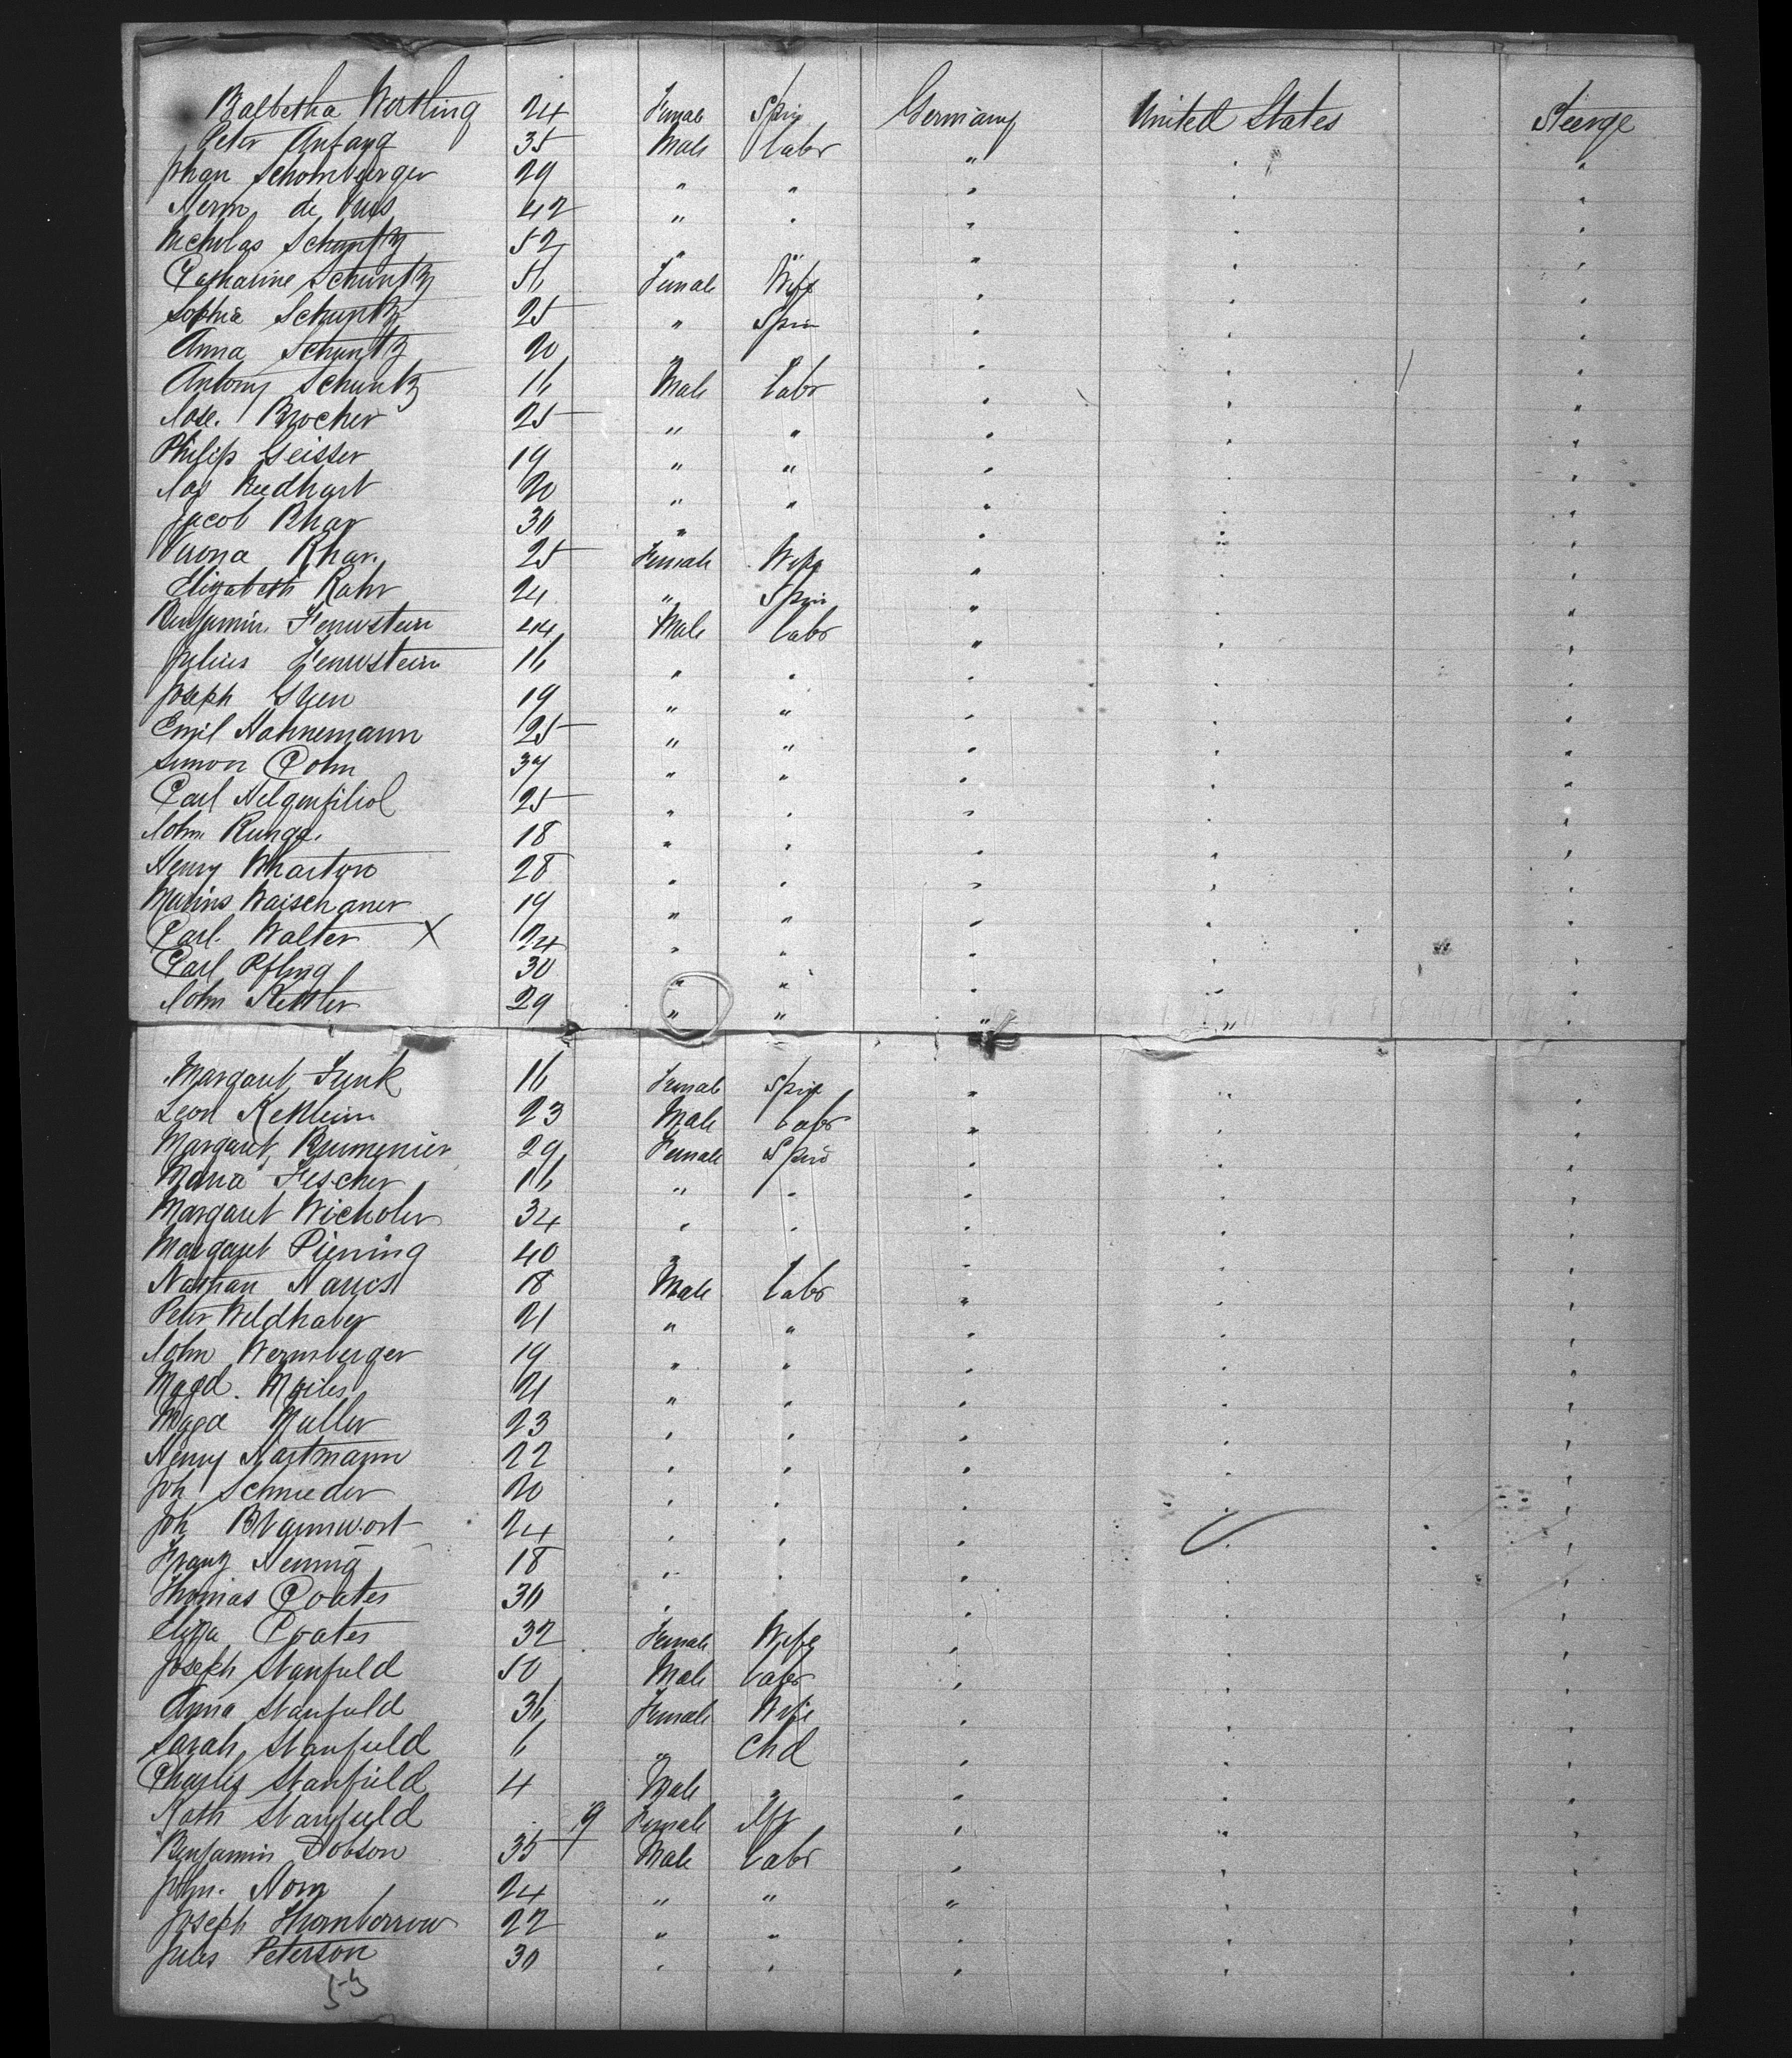 Balbetha Wortling 24 Female Spin Germany United States Steerge
Peter Anfang 35 Male Labr " " "
Johan Schomberger 29 " " " " "
Herm de Vries 42 " " " " "
Nicholas Schuntz 52 " " " " "
Catharine Schuntz 56 Female Wife " " "
Sophia Schuntz 25 " Spin " " "
Anna Schuntz 20 " " " " "
Antony Schuntz 16 Male Labr " " "
Jose. Brocher 25 " " " " "
Philip Geisser 19 " " " " "
Jos 20 " " " " "
Jacob Rhar 30 " " " " "
Verona Rhar. 25 Female Wife " " "
Elizabeth Rahr 24 " Spin " " "
Benjamin Feuwstein 44 Male Labr " " "
Julius Feuwstein 16 " " " " "
Joseph 19 " " " " "
Emil Hahnemann 25 " " " " "
Simon Cohn 37 " " " " "
Carl 25 " " " " "
John Runge. 18 " " " " "
Henry Wharton 28 " " " " "
Marins Waischaner 19 " " " " "
Carl. Walter X 24 " " " " "
Carl Pfling 30 " " " " "
John Kettler 29 " " " " "
Margaret Funk 16 Female Spin " " "
Leon 23 Male Labr " " "
Margaret 29 Female Spin " " "
Maria Fischer 16 " " " " "
Margaret Wicholer 34 " " " " "
Margaret Piening 40 " " " " "
Nathan 18 Male Labr " " "
Peter Wildhaber 21 " " " " "
John Wermberger 19 " " " " "
Magd. 21 " " " " "
Magd Muller 23 " " " " "
Henry Hartmann 22 " " " " "
Joh Schnieder 20 " " " " "
Joh 24 " " " " "
Franz Hening 18 " " " " "
Thomas Coates 30 " " " " "
Eliza Coates 32 Female Wife " " "
Joseph Stanfield 50 Male Labr " " "
Anna Stanfield 36 Female Wife " " "
Sarah Stanfield 6 " Chd " " "
Charles Stanfield 4 Male " " " "
Kath Stanfield 9 Female Inft " " "
Benjamin Dobson 35 Male Labr " " "
John. Horn 24 " " " " "
Joseph Thornborrow 22 " " " " "
Jules Peterson 30 " " " " "
53